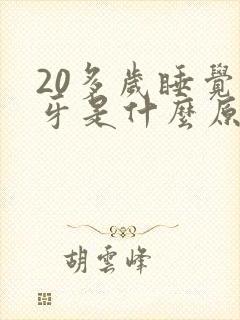 20多歲睡覺
牙是什麼原
胡雲峰